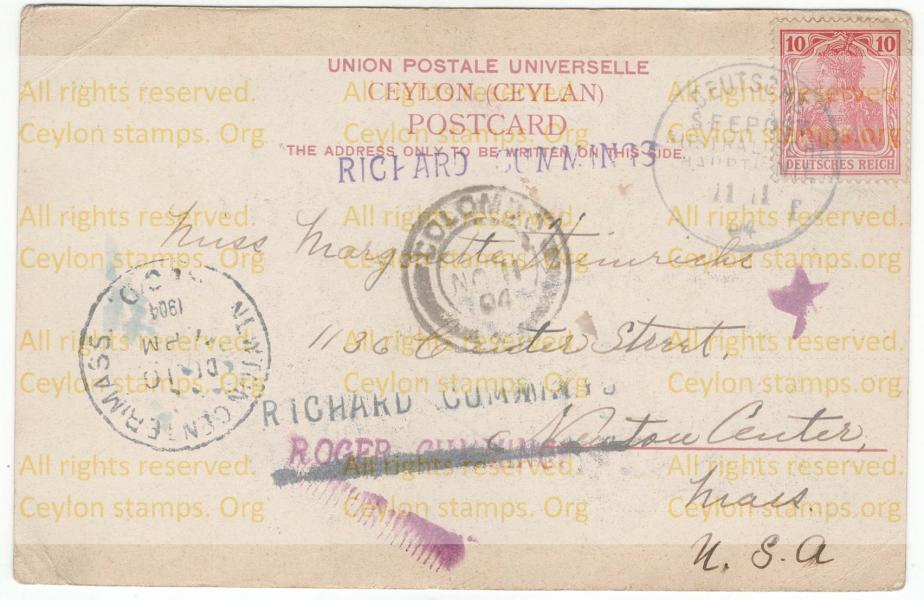 10 10
DEUTSCHES REICH
UNION POSTALE UNIVERSELLE
CEYLON (CEYLAN)
POSTCARD
THE ADDRESS ONLY TO BE WRITTEN ON THIS SIDE.
RICHARD CUMMINGS
DEUTSCHE
SEEPOST
HAUPT
11 11
04
COLOMBO
NO 11
04
Miss Marguerite Heinrichs
1136 Center Street,
Newton Center,
Mass.
U.S.A
NEWTON CENTER, MASS.
1904
PM
10
RICHARD CUMMINGS
ROGER CUMMINGS
All rights reserved. All rights reserved. All rights reserved.
Ceylon stamps. Org Ceylon stamps. Org Ceylon stamps.org
All rights reserved. All rights reserved. All rights reserved.
Ceylon stamps. Org Ceylon stamps. Org Ceylon stamps. Org
All rights reserved. All rights reserved. All rights reserved.
Ceylon stamps. Org Ceylon stamps. Org Ceylon stamps. Org
All rights reserved. All rights reserved. All rights reserved.
Ceylon stamps. Org Ceylon stamps. Org Ceylon stamps. Org